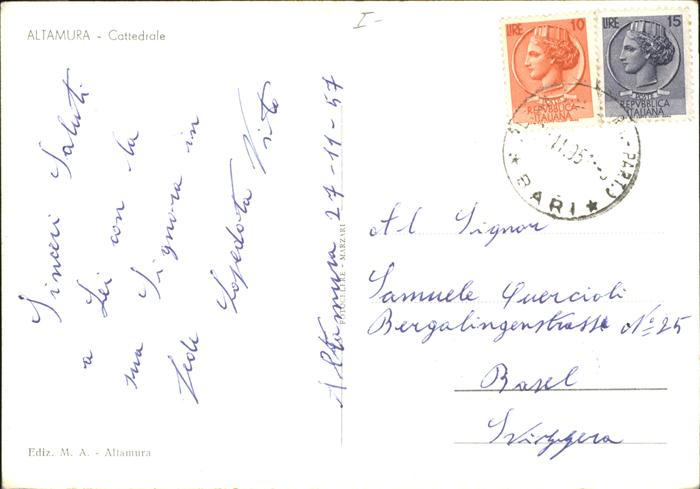 ALTAMURA - Cattedrale
I-
LIRE 10
POSTE
REPVBBLICA
ITALIANA
LIRE 15
POSTE
REPVBBLICA
ITALIANA
BARI
Sinceri Saluti
a Lei con la
sua Signora in
fede Vito
Altamura 27-11-57
FOTOCELERE - MARZARI
Al Signor
Samuele Quercioli
Bergalingenstrasse No 25
Basel
Svizzera
Ediz. M. A. - Altamura